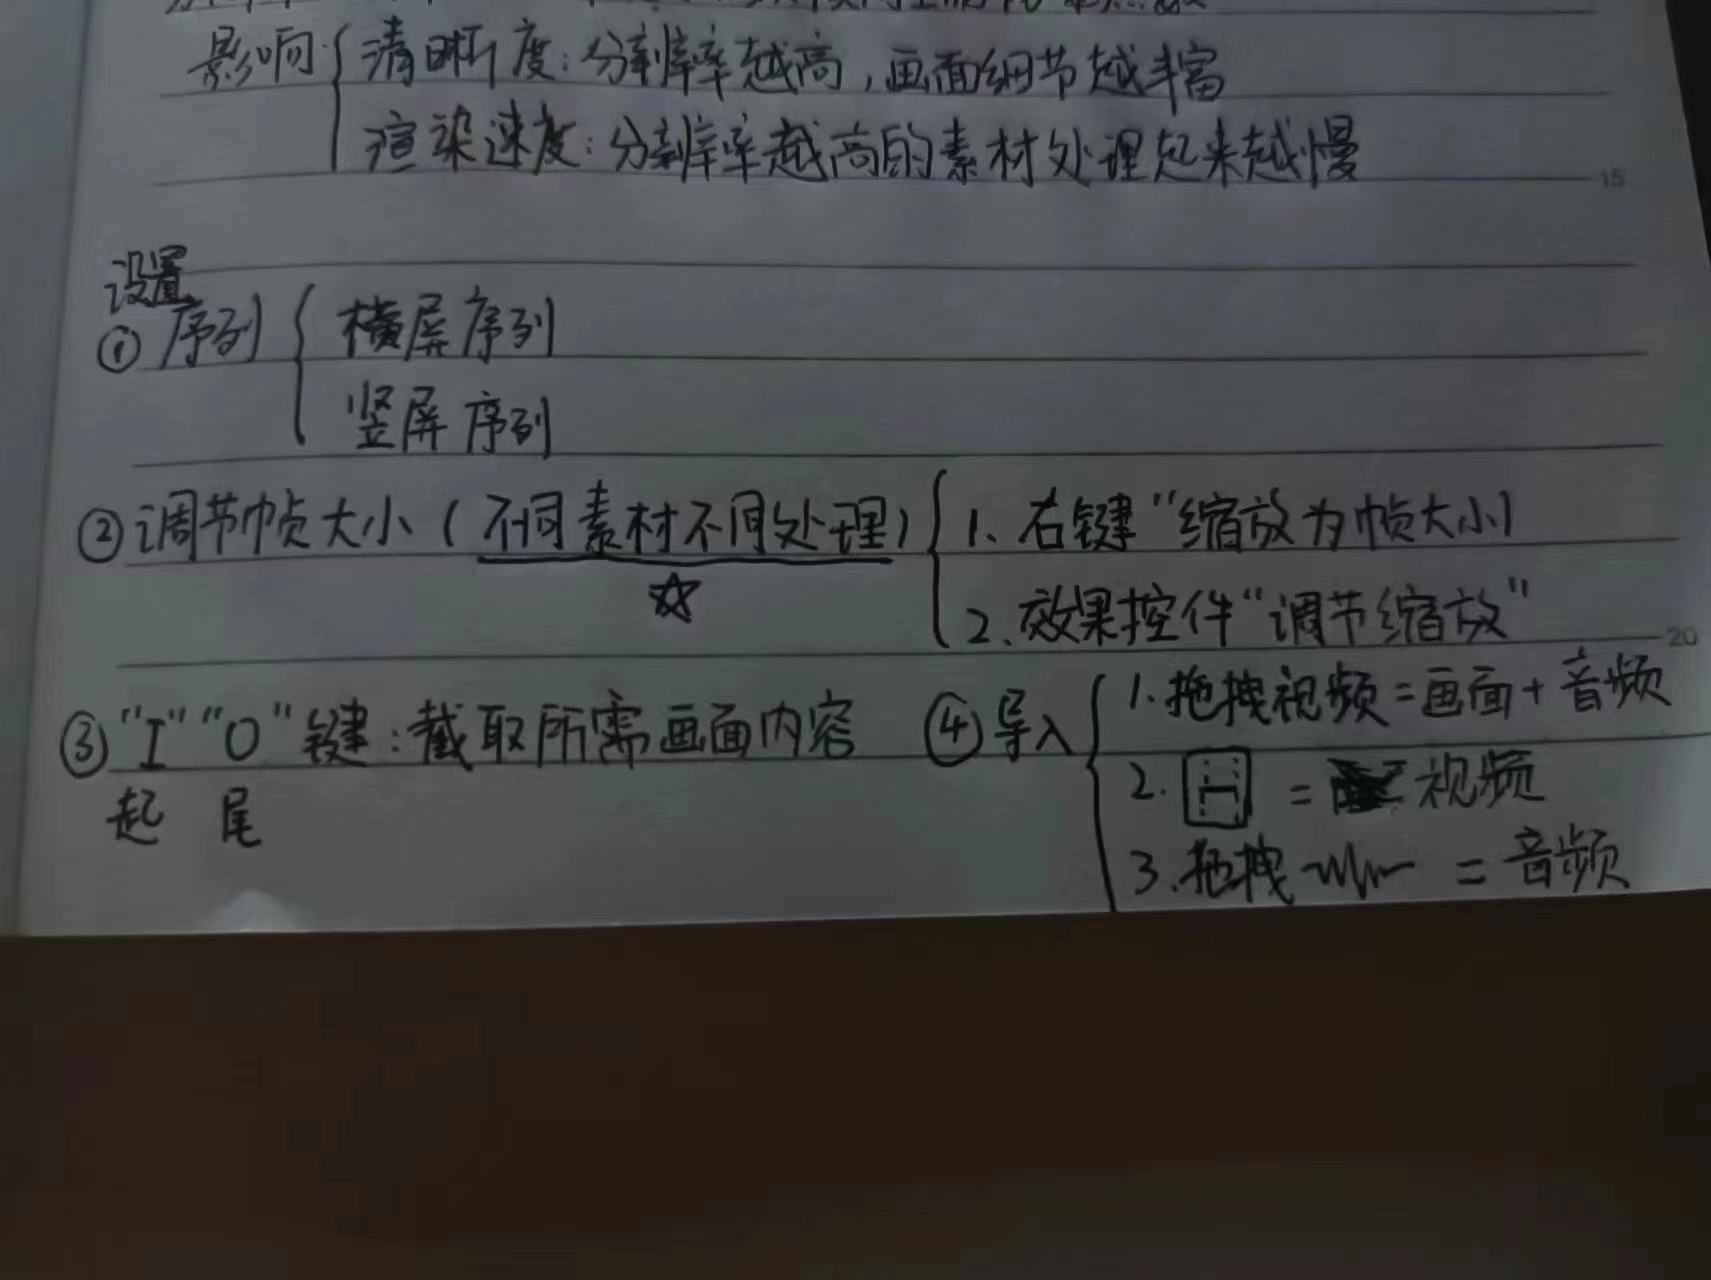 影响 清晰度：分辨率越高，画面细节越丰富
渲染速度：分辨率越高的素材处理起来越慢
15
设置
① 序列 横屏序列
竖屏序列
② 调节帧大小（不同素材不同处理） 1. 右键“缩放为帧大小
2. 效果控件“调节缩放”
20
③ “I” “O” 键：截取所需画面内容
起 尾
④ 导入 1. 拖拽视频＝画面＋音频
2. ＝ 视频
3. 拖拽 ＝ 音频